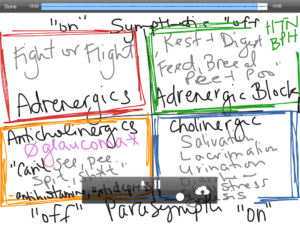 Done
"on" Sympthetic "off"
HTN
BPH
Fight or Flight
Adrenergics
Rest + Digest
Feed, Breed
Pee + Poo
Adrenergic Block
Anticholinergics
∅ glaucoma
"Can't see, pee,
spit, shit"
- antihistamine, antidepres
Cholinergic
Salivation
Lacrimation
Urination
"off" Parasymph "on"